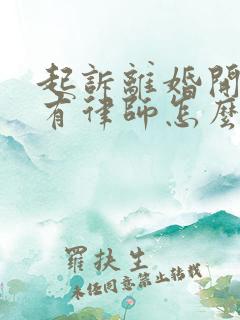 起訴離婚開
有律師怎麼
羅扶生
未經同意禁止轉載